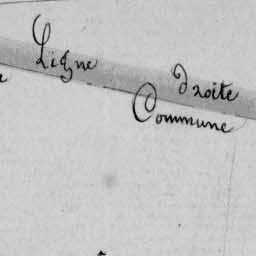 Ligne droite
Commune